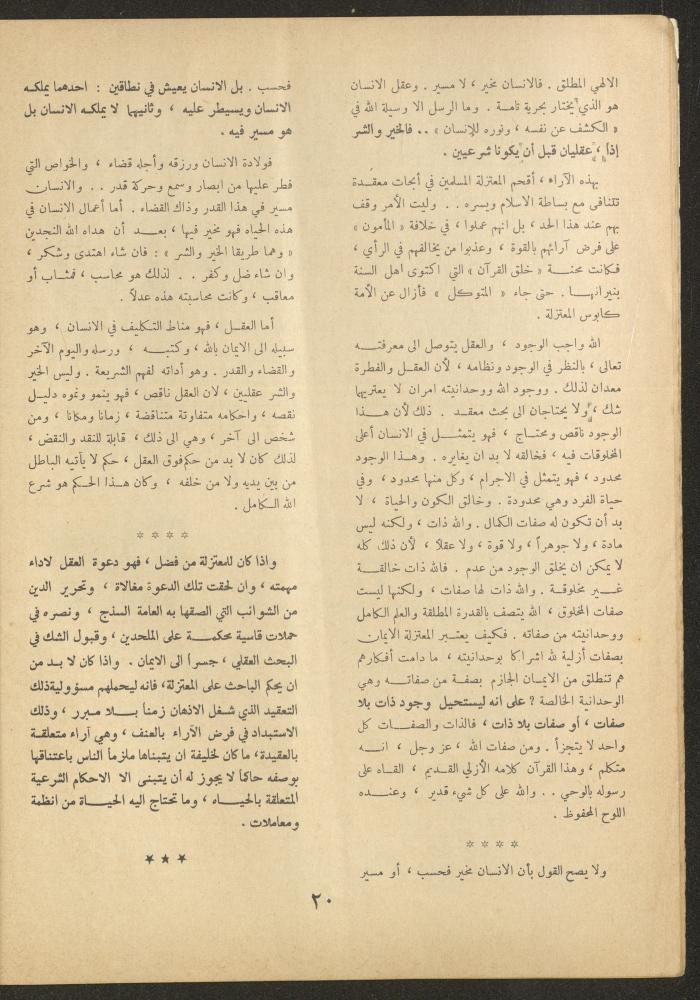 الالهي المطلق . فالانسان مخير ، لا مسير . وعقل الانسان
هو الذي يختار بحرية تامة . وما الرسل الا وسيلة الله في
« الكشف عن نفسه ، ونوره للإنسان » .. فالخير والشر
إذاً ، عقليان قبل أن يكونا شرعيين .
بهذه الآراء ، أقحم المعتزلة المسلمين في أبحاث معقدة
تتنافى مع بساطة الاسلام ويسره . . وليت الأمر وقف
بهم عند هذا الحد ، بل انهم عملوا ، في خلافة « المأمون »
على فرض آرائهم بالقوة ، وعذبوا من يخالفهم في الرأي ،
فكانت محنة « خلق القرآن » التي اكتوى اهل السنة
بنيرانها . حتى جاء « المتوكل » فأزال عن الأمة
كابوس المعتزلة .
الله واجب الوجود ، والعقل يتوصل الى معرفته
تعالى ، بالنظر في الوجود ونظامه ، لأن العقل والفطرة
معدان لذلك . ووجود الله ووحدانيته امران لا يعتريها
شك ، ولا يحتاجان الى بحث معقد . ذلك لأن هذا
الوجود ناقص ومحتاج ، فهو يتمثل في الانسان أعلى
المخلوقات فيه ، فخالقه لا بد ان يغايره . وهذا الوجود
محدود ، فهو يتمثل في الاجرام ، وكل منها محدود ، وفي
حياة الفرد وهي محدودة . وخالق الكون والحياة ، لا
بد أن تكون له صفات الكمال . والله ذات ، ولكنه ليس
مادة ، ولا جوهراً ، ولا قوة ، ولا عقلاً ، لأن ذلك كله
لا يمكن ان يخلق الوجود من عدم . فالله ذات خالقة
غير مخلوقة . والله ذات لها صفات ، ولكنها ليست
صفات المخلوق ، الله يتصف بالقدرة المطلقة والعلم الكامل
ووحدانيته من صفاته . فكيف يعتبر المعتزلة الايمان
بصفات أزلية لله اشراكا بوحدانيته ، ما دامت أفكارهم
هم تنطلق من الايمان الجازم بصفة من صفاته وهي
الوحدانية الخالصة ؟ على انه ليستحيل وجود ذات بلا
صفات ، أو صفات بلا ذات ، فالذات والصفات كل
واحد لا يتجزأ . ومن صفات الله ، عز وجل ، انه
متكلم ، وهذا القرآن كلامه الأزلي القديم ، القاه على
رسوله بالوحي . . والله على كل شيء قدير ، وعنده
اللوح المحفوظ .
☆ ☆ ☆ ☆
ولا يصح القول بأن الانسان مخير فحسب ، أو مسير
فحسب . بل الانسان يعيش في نطاقين : احدهما يملكه
الانسان ويسيطر عليه ، وثانيهما لا يملكه الانسان بل
هو مسير فيه .
فولادة الانسان ورزقه وأجله قضاء ، والخواص التي
فطر عليها من ابصار وسمع وحركة قدر . . والانسان
مسير في هذا القدر وذاك القضاء . أما أعمال الانسان في
هذه الحياة فهو مخير فيها ، بعد أن هداه الله النجدين
« وهما طريقا الخير والشر » : فان شاء اهتدى وشكر ،
وان شاء ضل وكفر . . لذلك هو محاسب ، فمثاب أو
معاقب ، وكانت محاسبته هذه عدلاً .
أما العقل ، فهو مناط التكليف في الانسان ، وهو
سبيله الى الايمان بالله ، وكتبه ، ورسله واليوم الآخر
والقضاء والقدر . وهو أداته لفهم الشريعة . وليس الخير
والشر عقليين ، لان العقل ناقص ، فهو ينمو ونموه دليل
نقصه ، واحكامه متفاوتة متناقضة ، زمانا ومكانا ، ومن
شخص الى آخر ، وهي الى ذلك ، قابلة للنقد والنقض ،
لذلك كان لا بد من حكم فوق العقل ، حكم لا يأتيه الباطل
من بين يديه ولا من خلفه ، وكان هذا الحكم هو شرع
الله الكامل .
☆ ☆ ☆ ☆
واذا كان للمعتزلة من فضل ، فهو دعوة العقل لاداء
مهمته ، وان لحقت تلك الدعوة مغالاة ، وتحرير الدين
من الشوائب التي الصقها به العامة السذج ، ونصره في
حملات قاسية محكمة على الملحدين ، وقبول الشك في
البحث العقلي ، جسراً الى الايمان . واذا كان لا بد من
ان يحكم الباحث على المعتزلة ، فانه ليحملهم مسؤولية ذلك
التعقيد الذي شغل الاذهان زمناً بلا مبرر ، وذلك
الاستبداد في فرض الآراء بالعنف ، وهي آراء متعلقة
بالعقيدة ، ما كان لخليفة ان يتبناها ملزماً الناس باعتناقها
بوصفه حاكماً لا يجوز له أن يتبنى الا الاحكام الشرعية
المتعلقة بالحياه ، وما تحتاج اليه الحياة من انظمة
ومعاملات .
★ ★ ★
٢٠